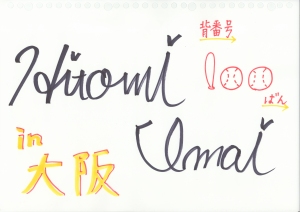 Hitomi
背番号
100
ばん
in
大阪
Umai